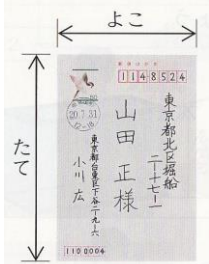 よこ
たて
郵便はがき
1148524
20.7.31
東京都北区堀船
二ー十七ー一
山田正様
東京都台東区下谷一ー九ー六
小川広
1100004